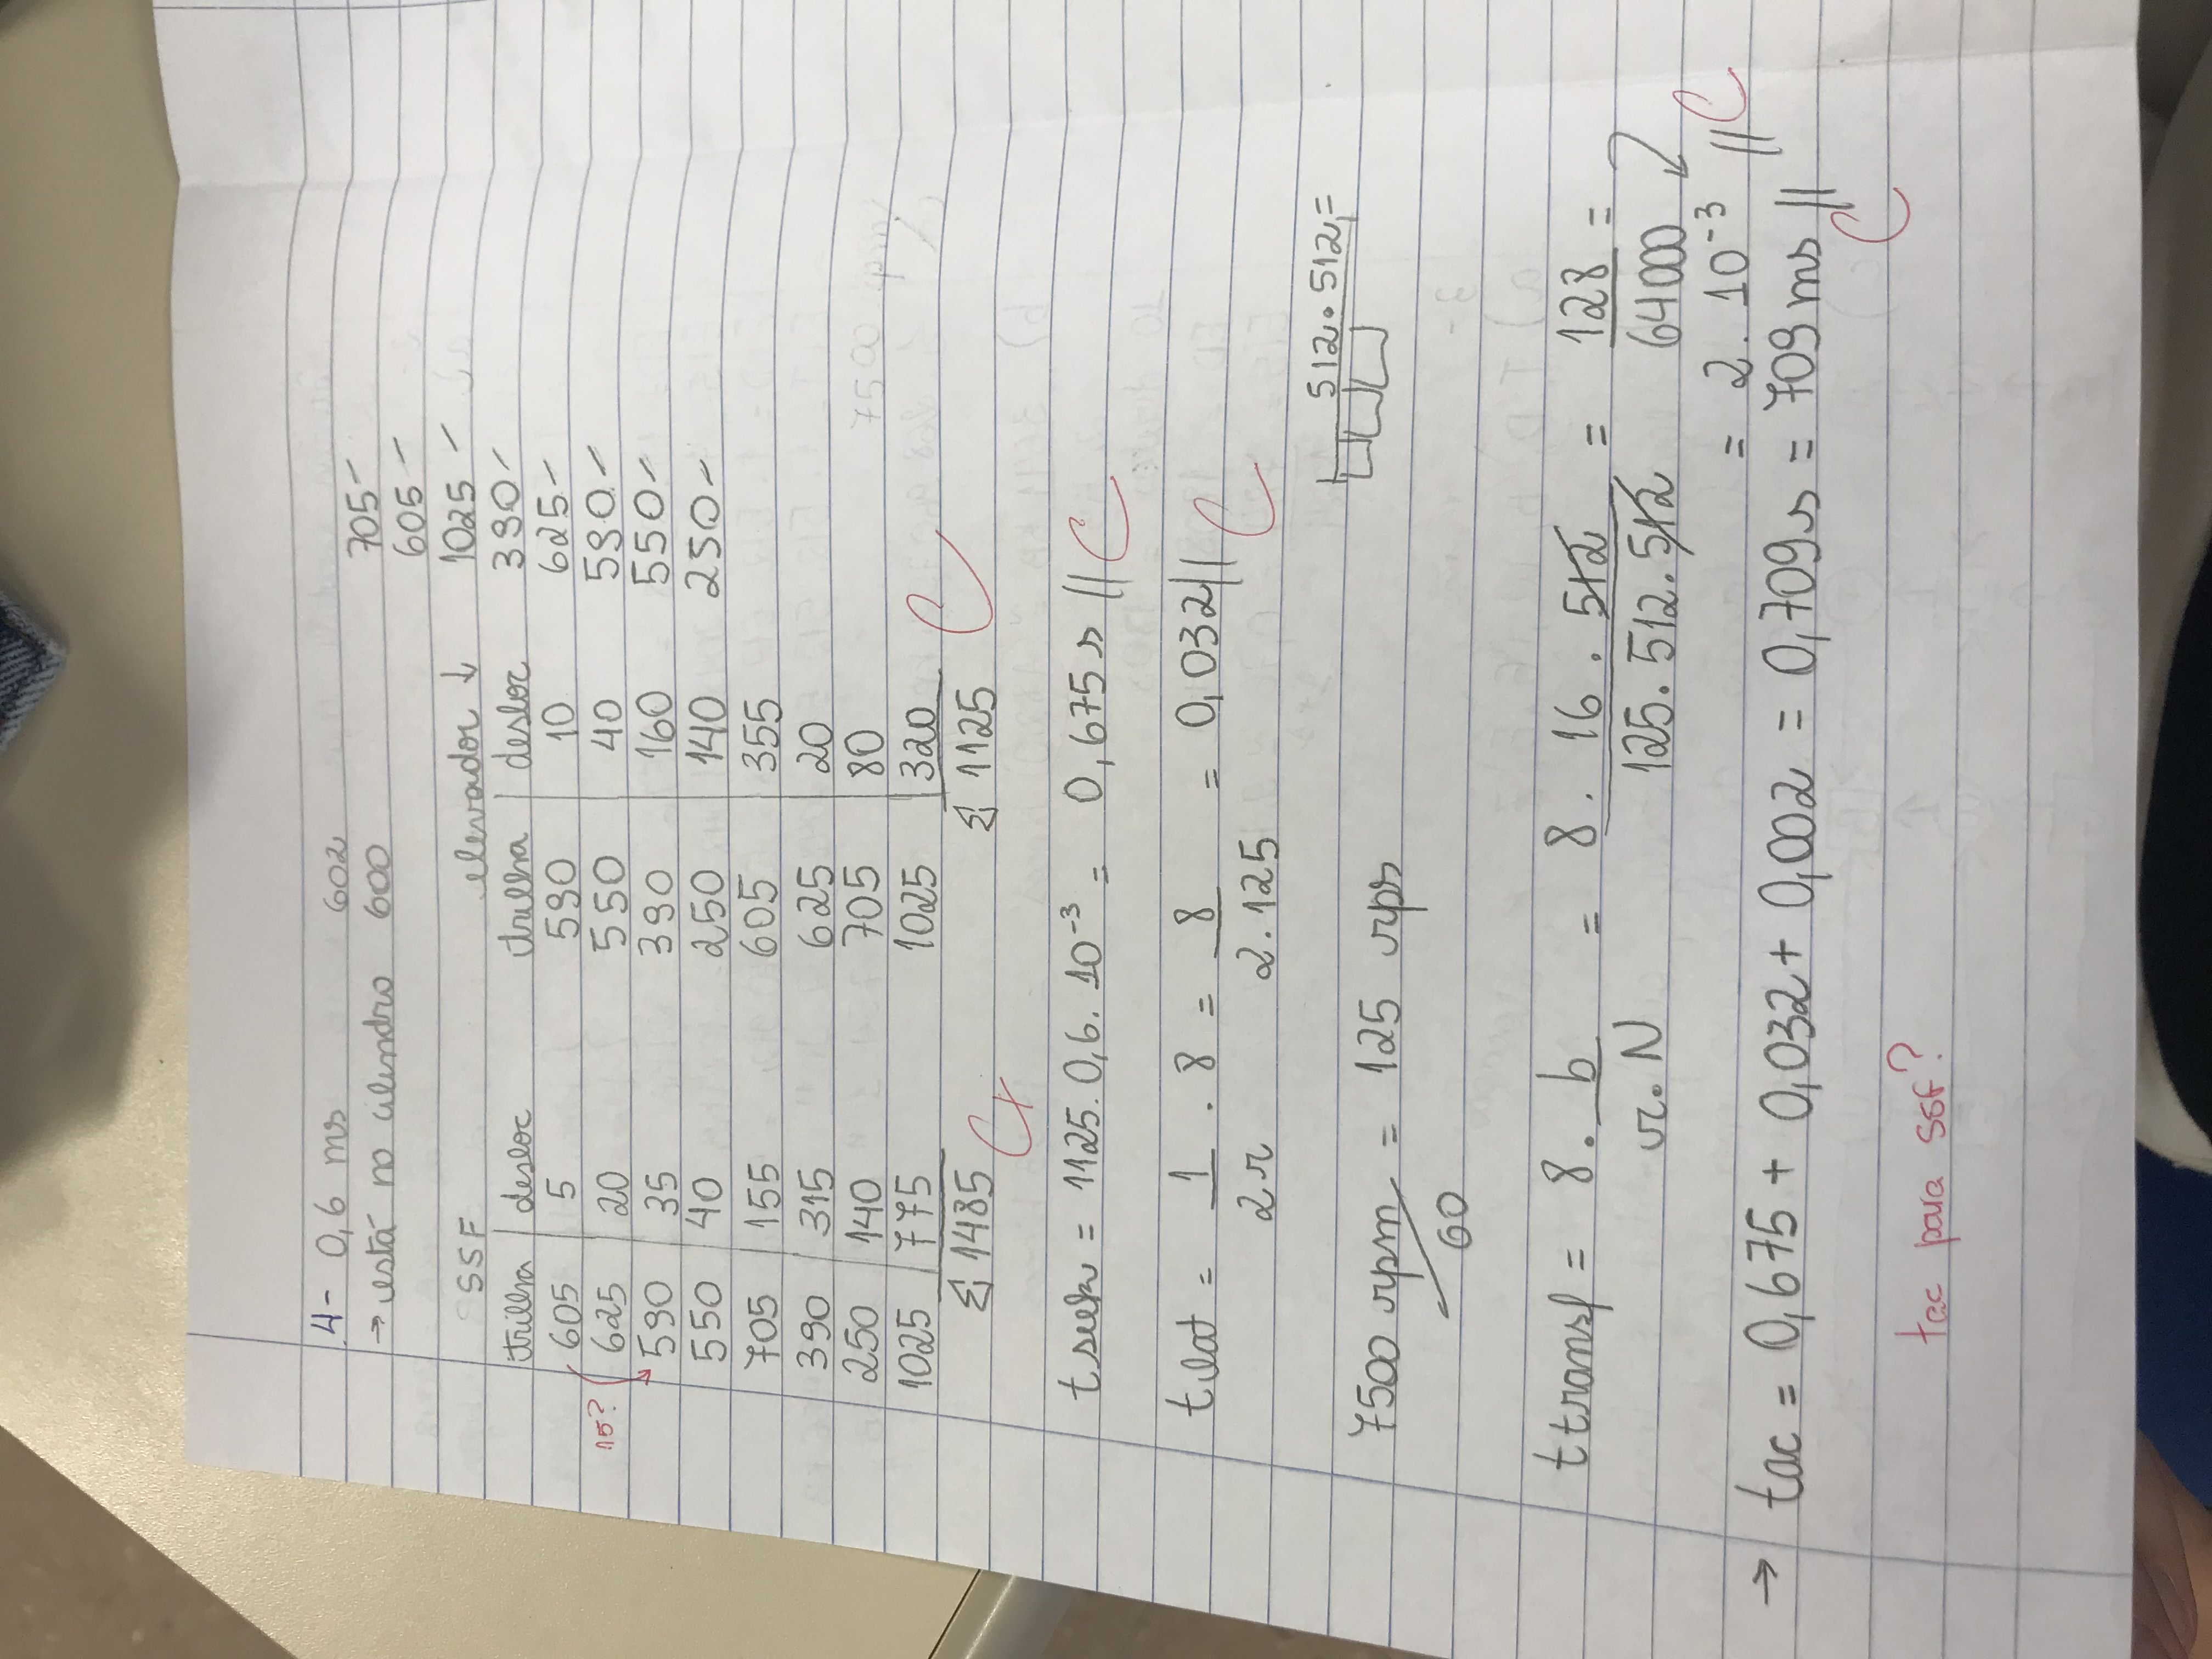 4- 0,6 ms 602
→ está no cilindro 600
705-
605-
1025-
390-
625-
590-
550-
250-
SSF
trilha desloc
605 5
625 20
590 35
550 40
705 155
390 315
250 140
1025 775
Σ 1485
15?
C+
elevador ↓
trilha desloc
590 10
550 40
390 160
250 140
605 355
625 20
705 80
1025 320
Σ 1125
C
tseek = 1125. 0,6. 10⁻³ = 0,675 s // C
tlat = 1/2r . 8 = 8/2.125 = 0,032 // C
512.512 =
7500 rpm/60 = 125 rps
ttransf = 8. b/r.N = 8. 16. 512/125.512.512 = 128/64000 =
= 2. 10⁻³ // C
→ tac = 0,675 + 0,032 + 0,002 = 0,709 s = 709 ms //
C
tac para SSF?